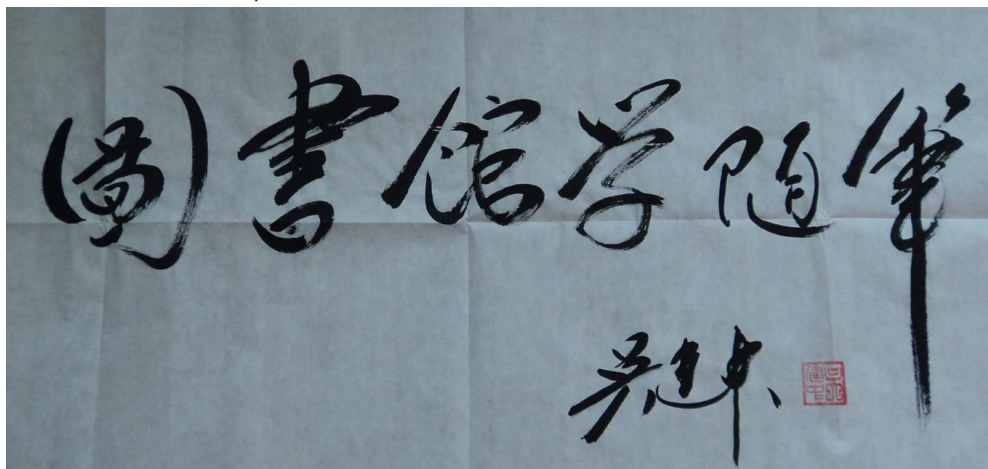 圖書館学随筆
吴建中